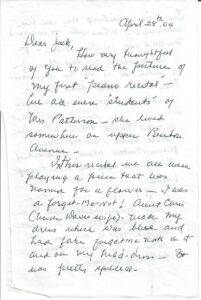 April 28th 04
Dear Jack,
How very thoughtful
of you to send the picture of
my first "piano recital" –
We all were "students" of
Mrs Patterson – she lived
somewhere on upper Benton
Avenue.
In this recital we all were
playing a piece that was
named for a flower – it was
a forget-me-not! Aunt Chris
made my
dress which was blue and
had fake forget me nots on it
and on my head. –
was pretty special –